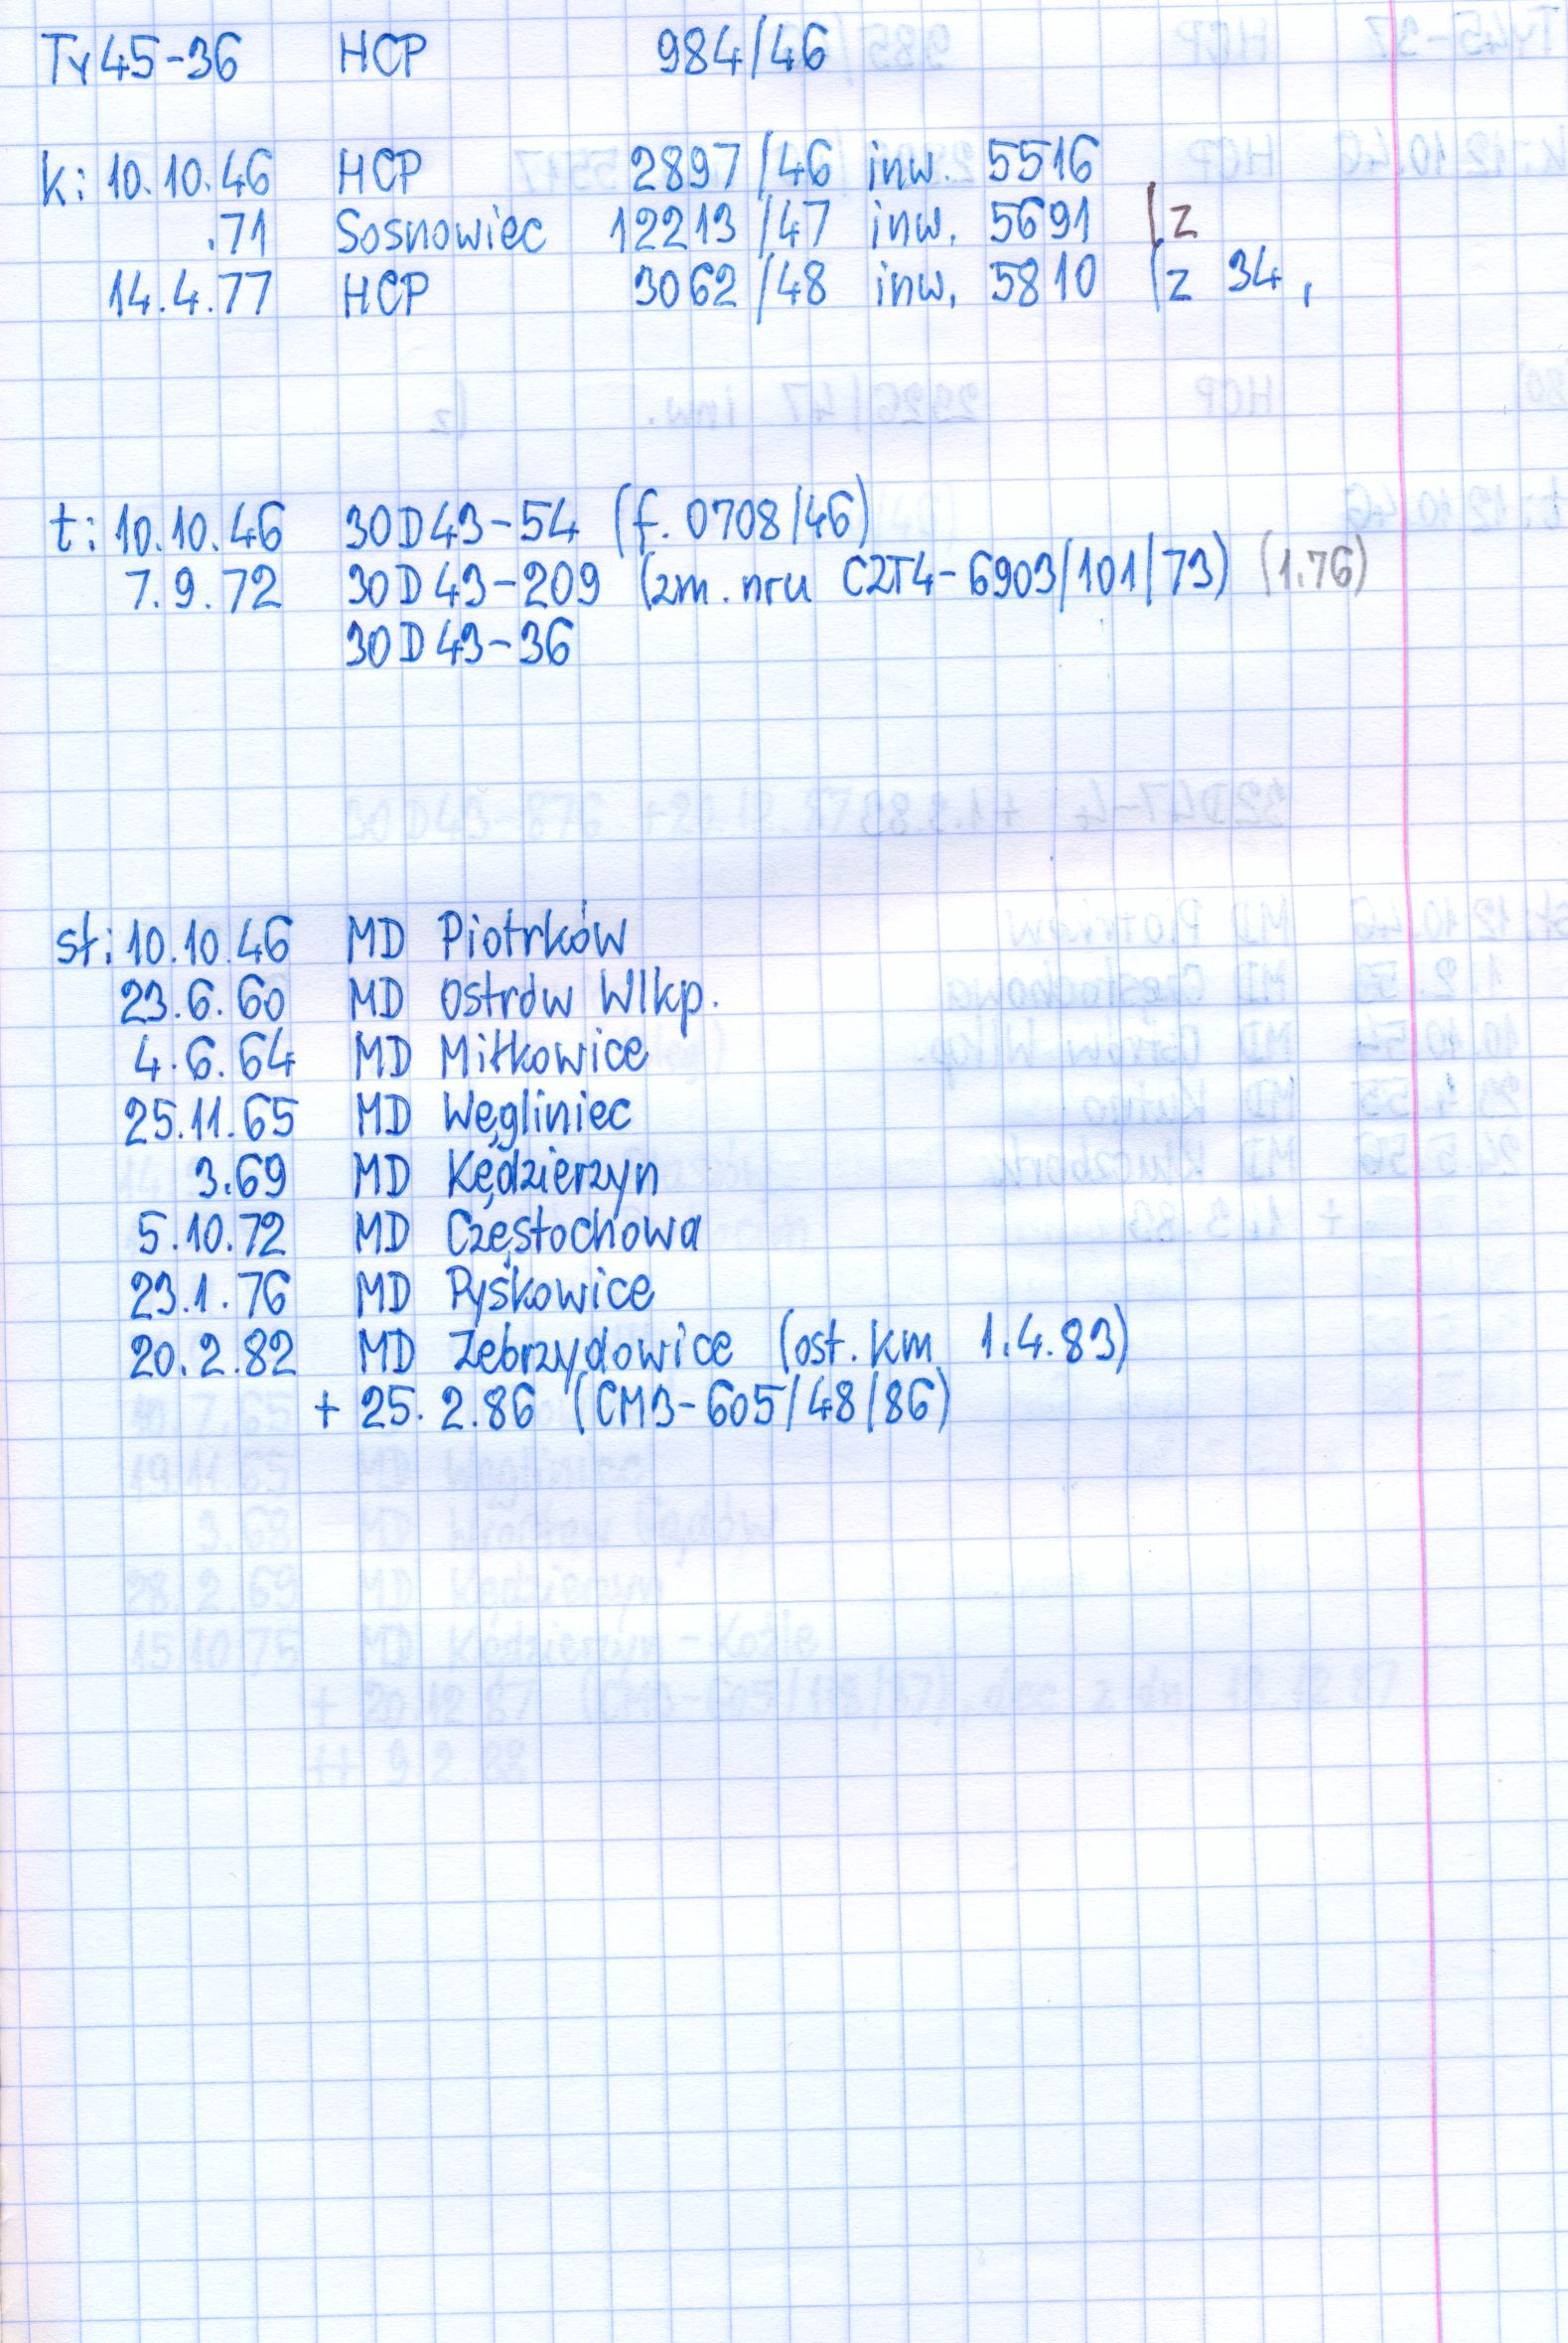 Ty45-36 HCP 984/46
k: 10.10.46 HCP 2897/46 inw. 5516
.71 Sosnowiec 12213/47 inw. 5691 (z
14.4.77 HCP 3062/48 inw. 5810 (z 34,
t: 10.10.46 30D43-54 (f. 0708/46)
7.9.72 30D43-209 (zm. nru CZT4-6903/101/73) (1.76)
30D43-36
st: 10.10.46 MD Piotrków
23.6.60 MD Ostrów Wlkp.
4.6.64 MD Miłkowice
25.11.65 MD Węgliniec
3.69 MD Kędzierzyn
5.10.72 MD Częstochowa
23.1.76 MD Pyskowice
20.2.82 MD Zebrzydowice (ost. km 1.4.83)
+ 25.2.86 (CM3-605/48/86)